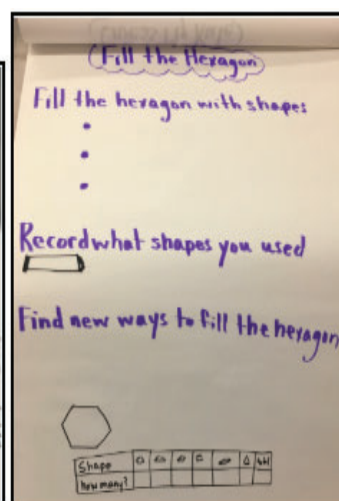 Fill the Hexagon
Fill the hexagon with shapes
Record what shapes you used
Find new ways to fill the hexagon
Shape
how many?